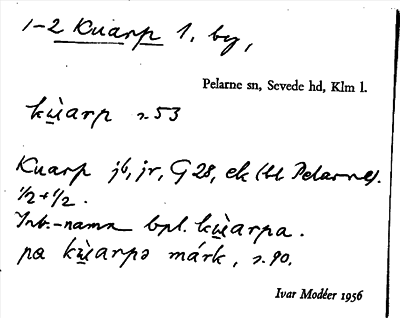 1-2 Kuarp 1, by,
Pelarne sn, Sevede hd, Klm l.
kụ̀arp s. 53
Kuarp jb, jr, G 28, ek (bl Pelarne).
1/2 + 1/2.
Inb.-namn bpl. kụ̀arpa.
pa kụ̀arpə márk, s. 90.
Ivar Modéer 1956